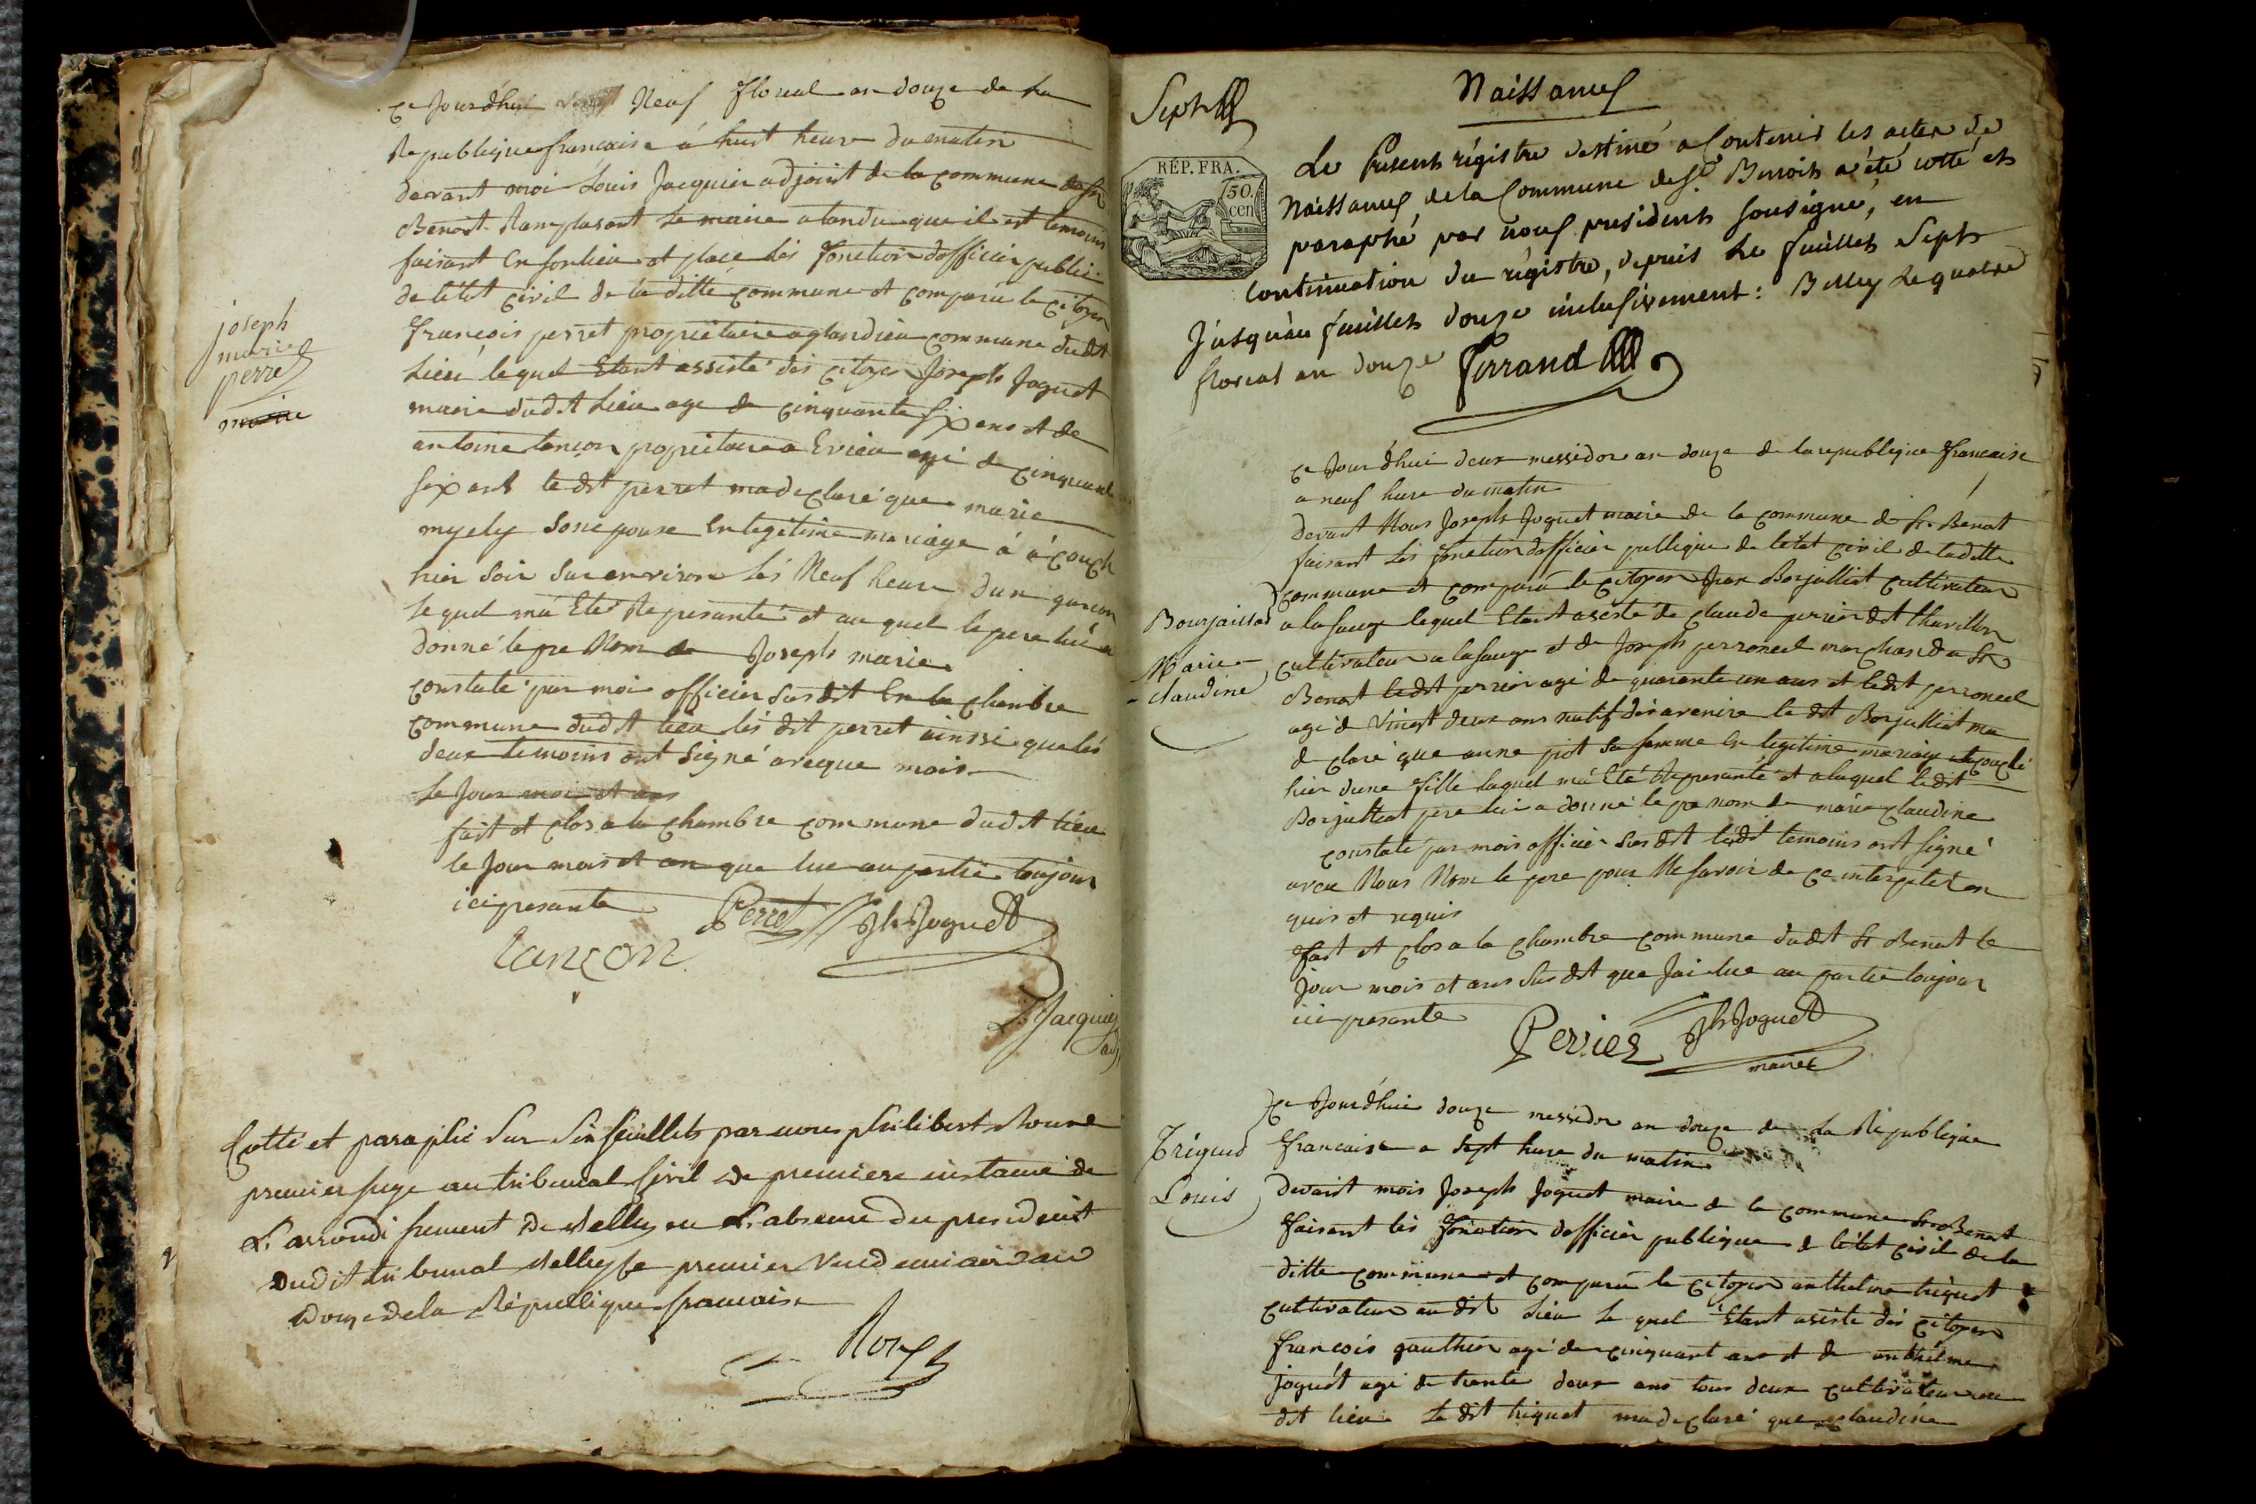 ce Jourdhui Neuf floreal an douze de La
Republique francaise á huit heure du matin
devant moi Louis Jacquier adjoint de la commune de St
Benoit Ramplasant Le maire atandu que il est temoin
faisant En son lieu et place Les fonction dofficier public
de letat civil de la ditte commune et comparu le citoyen
francois perret propriétaire a glandieu commune dudit
Lieu lequel Etant assisté des citoyen Joseph Joguet
maire dudit Lieu age de cinquante six ans et de
antoine tançon propriétaire a Evieu agé de cinquante
six ans le dit perret ma declaré que marie
myely son epouse En legitime mariage á ácouch
hier soir sur environ Lés Neuf heure dun garcon
Le quel má Eté Representé et au quel le pere lui á
donné le pre Nom de Joseph marie
constaté par moi officier susdit En la chambre
commune dudit lieu lés dit perret ainssi que lés
deux temoins ont signé avecque mois
Le Jour moi et ans
fait et clos a la chambre commune dudit lieu
le Jour mois et an que lue au partie toujour
ici presente
joseph
marie
perret
maire
Perret Jh Joguet
tançon
Ls Jacquier
adj
Cotté et paraphé sur six feuillets par nous philibert Roux
premier juge au tribunal Civil de premiere instance de
L'arrondissement de Belley en L'absence du president
dudit tribunal Belley le premier Vendemiaire an
Douze de la République francaise
Roux
Sept
Naissances
RÉP. FRA.
50.
cen
Le Present régistre destiné a Contenir les actes de
Naissances de la Commune de St. Benoit a été cotté et
paraphé par nous president sousigné, en
continuation du régistre, depuis Le feuillet Sept
Jusqu'au feuillet douze inclusivement: Belley Le quatre
floreal an douze Ferrand
ce Jour dhui deux messidor an douze de la republique francaise
a neuf hure du matin
Devant Nous Joseph Joguet maire de la commune de St. Benoit
faisant Lés fonction dofficier publique de letat civil de ladite
commune et comparu le citoyen Jean Borjalliat cultivateur
a la sauge lequel Etant asesté de claude perrier dit charillon
cultivateur a la sauge et de Joseph perroncel marchand a St
Benoit ledit perrier agé de quarante un ans et ledit perroncel
agé de Vingt deux ans natif dés avenire le dit Borjalliat ma
declaré que anne piot sa femme En legitime mariage a acouché
hier dune fille laquel má Eté Represanté et a laquel ledit
Borjalliat pere lui a donné le pre nom de marie claudine
constaté par mois officier sus dit lesdit temoins ont signé
avec Nous Nom le pere pour Ne savoir de ce interpeler en
quis et requis
fait et clos a la chambre commune dudit St Benoit le
Jour mois et ans sus dit que Jai lue au partie toujour
ici presente
Bourjaillat
Marie
claudine
Perrier Jh Joguet
maire
ce Jourdhui douze messidor an douze de La République
francaise a sept hure du matin
Devant mois Joseph Joguet maire de la commune St Benoit
faisant lés fonction dofficier publique de létat civil de la
ditte commune et comparu le citoyen anthelme triquet
cultivateur au dit Lieu Le quel Etant asisté dés citoyen
francois gauthier agé de cinquant ans et de anthelme
joguét agé de trente deux ans tous deux cultivateur au
dit lieu Le dit triquet ma declaré que claudine
Triquet
Louis